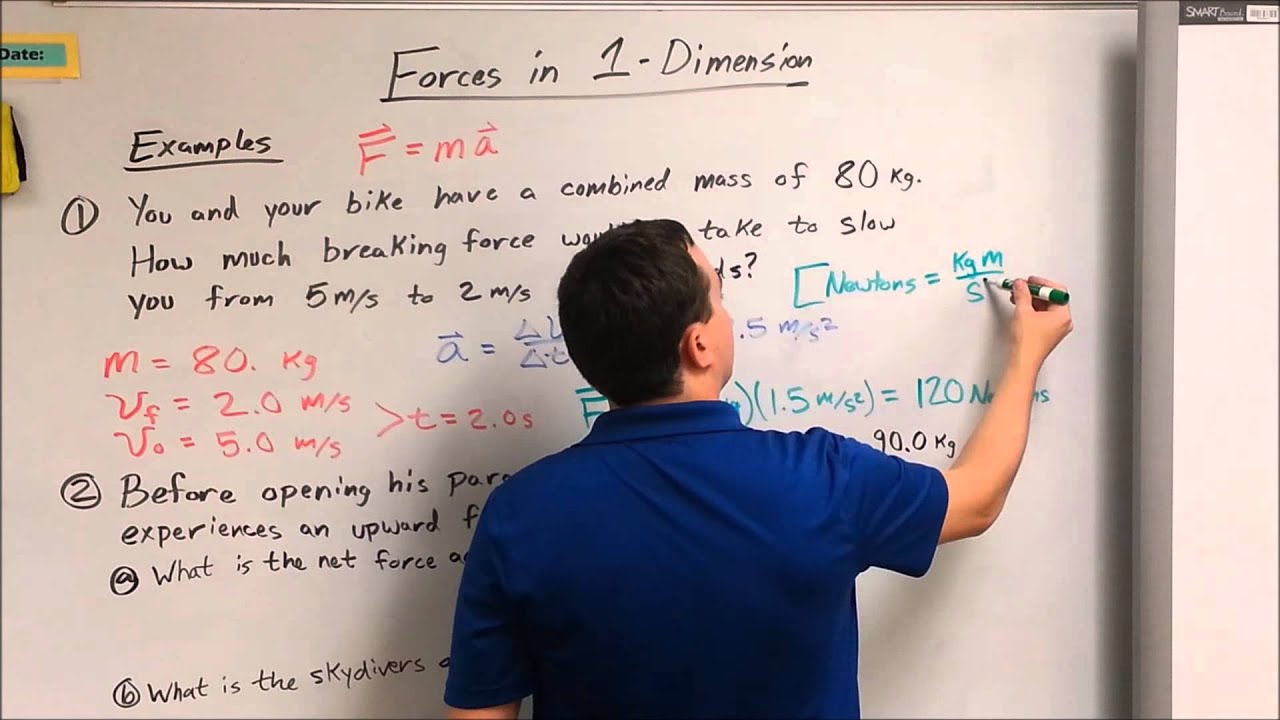 SMART Board
Date:
Forces in 1-Dimension
Examples
F = ma
① You and your bike have a combined mass of 80 Kg.
How much breaking force take to slow
you from 5 m/s to 2 m/s ds?
[Newtons = Kg m
s
a = Δ
Δt
.5 m/s²
m = 80. Kg
Vf = 2.0 m/s
V₀ = 5.0 m/s
>t = 2.0s
F )(1.5 m/s²) = 120 N
② Before opening his 90.0 Kg
experiences an upward
ⓐ What is the net force
ⓑ What is the skydivers